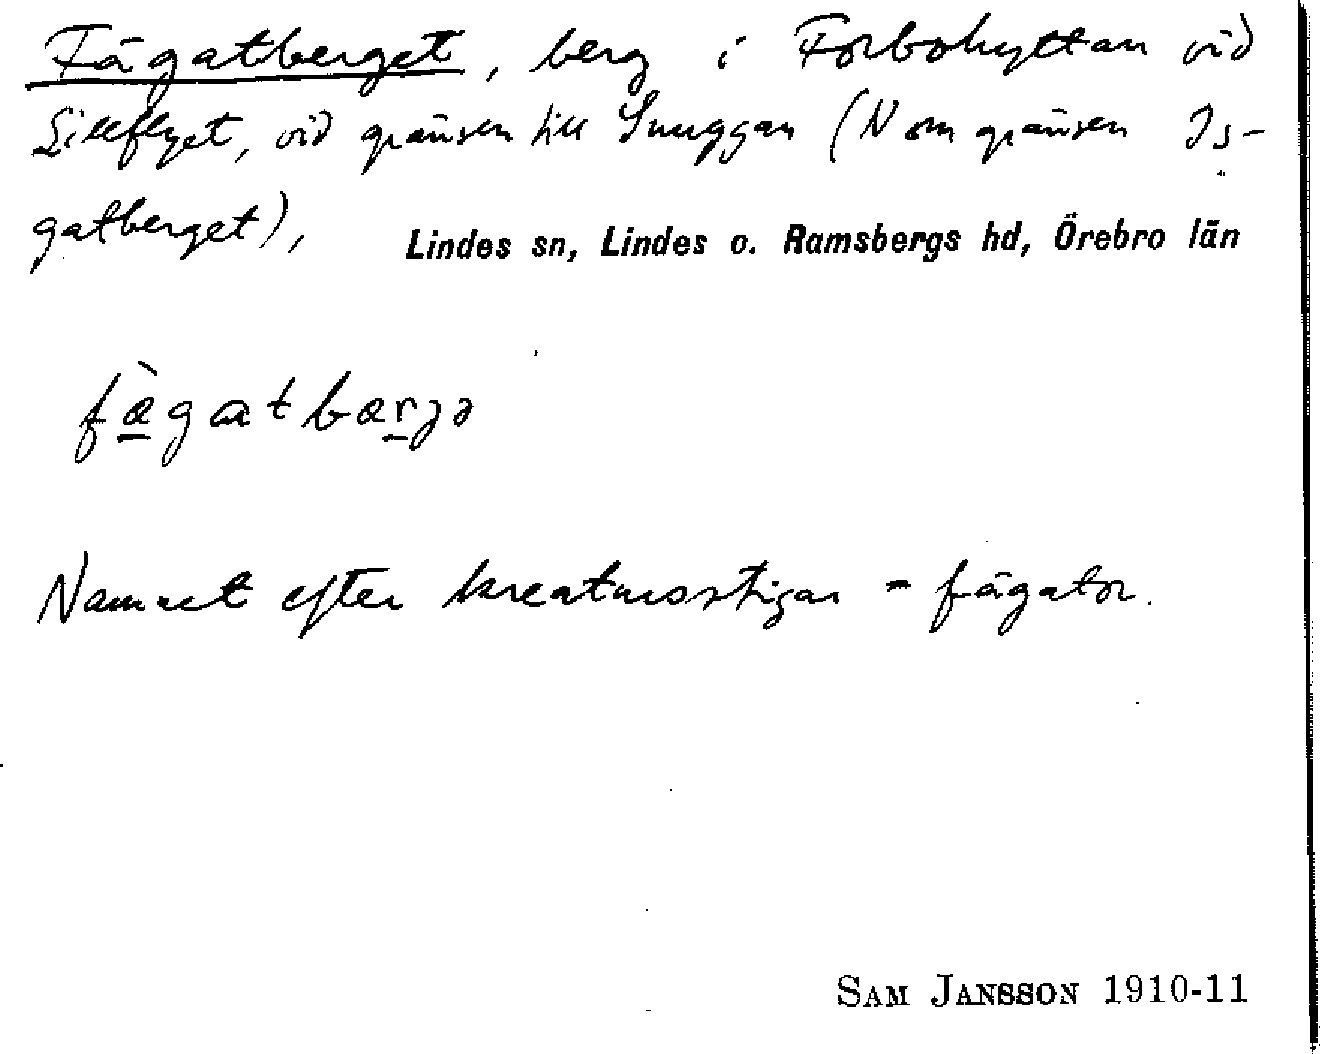 Fägatberget, berg i Forbohyttan vid
Sillflyet, vid gränsen till Snuggan (N om gränsen Is-
gatberget),
Lindes sn, Lindes o. Ramsbergs hd, Örebro län
fæ̀gatbærjə
Namnet efter kreatursstigar = fägator.
SAM JANSSON 1910-11